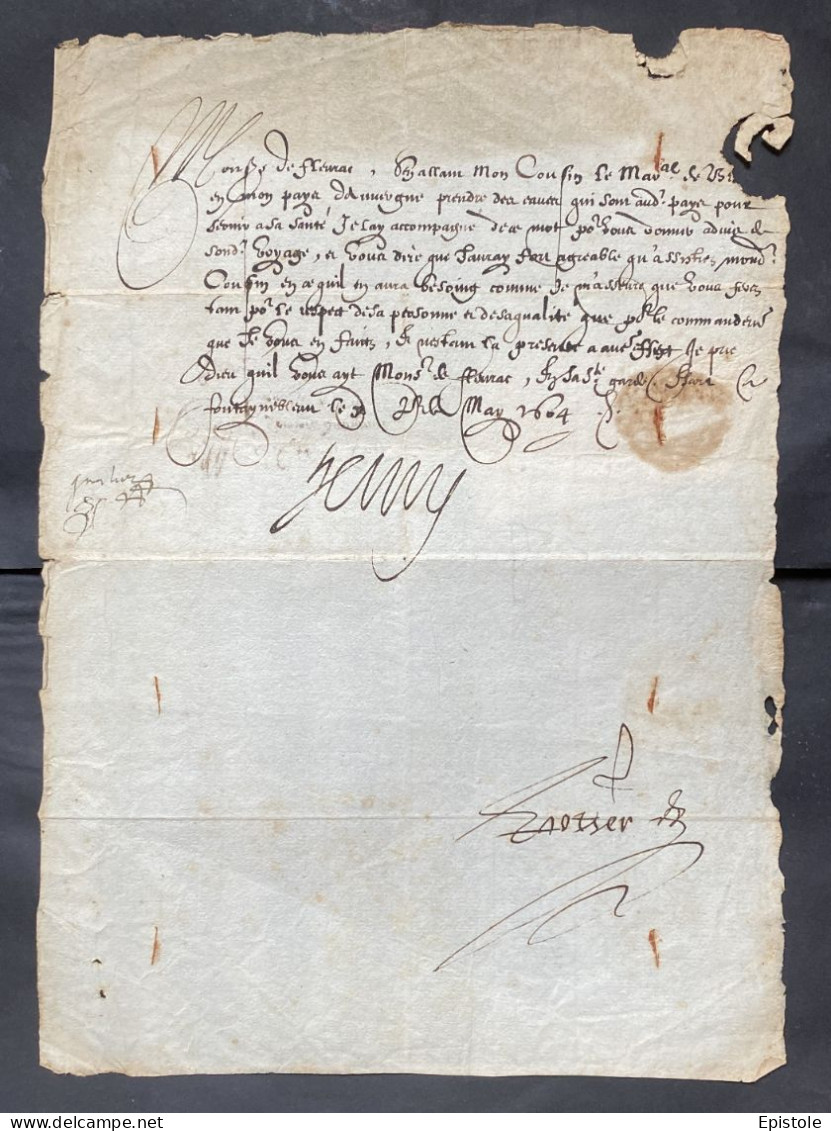 Monsr de fleurac, Sen allant Mon Cousin le Mar.al de
en mon pays d'auvergne prendre des eaues qui sont aud. pays pour
servir a sa santé Je lay accompagne de ce mot po.r vous donner advis de
sond. voyage, et vous dire que Jauray fort agreable qu'assistiez mond.
Cousin en ce quil en aura besoing comme Je m'asseure que vous ferez
tant po.r le respect de sa personne et de sa qualité que po.r le commandem.t
que Je vous en faictz, Et nestant la presente a autre effect Je prie
dieu quil vous ayt Mons.r de fleurac, En sa s.te garde. Escri a
fontaynebleau le Jo.r de May 1604 .
Henry